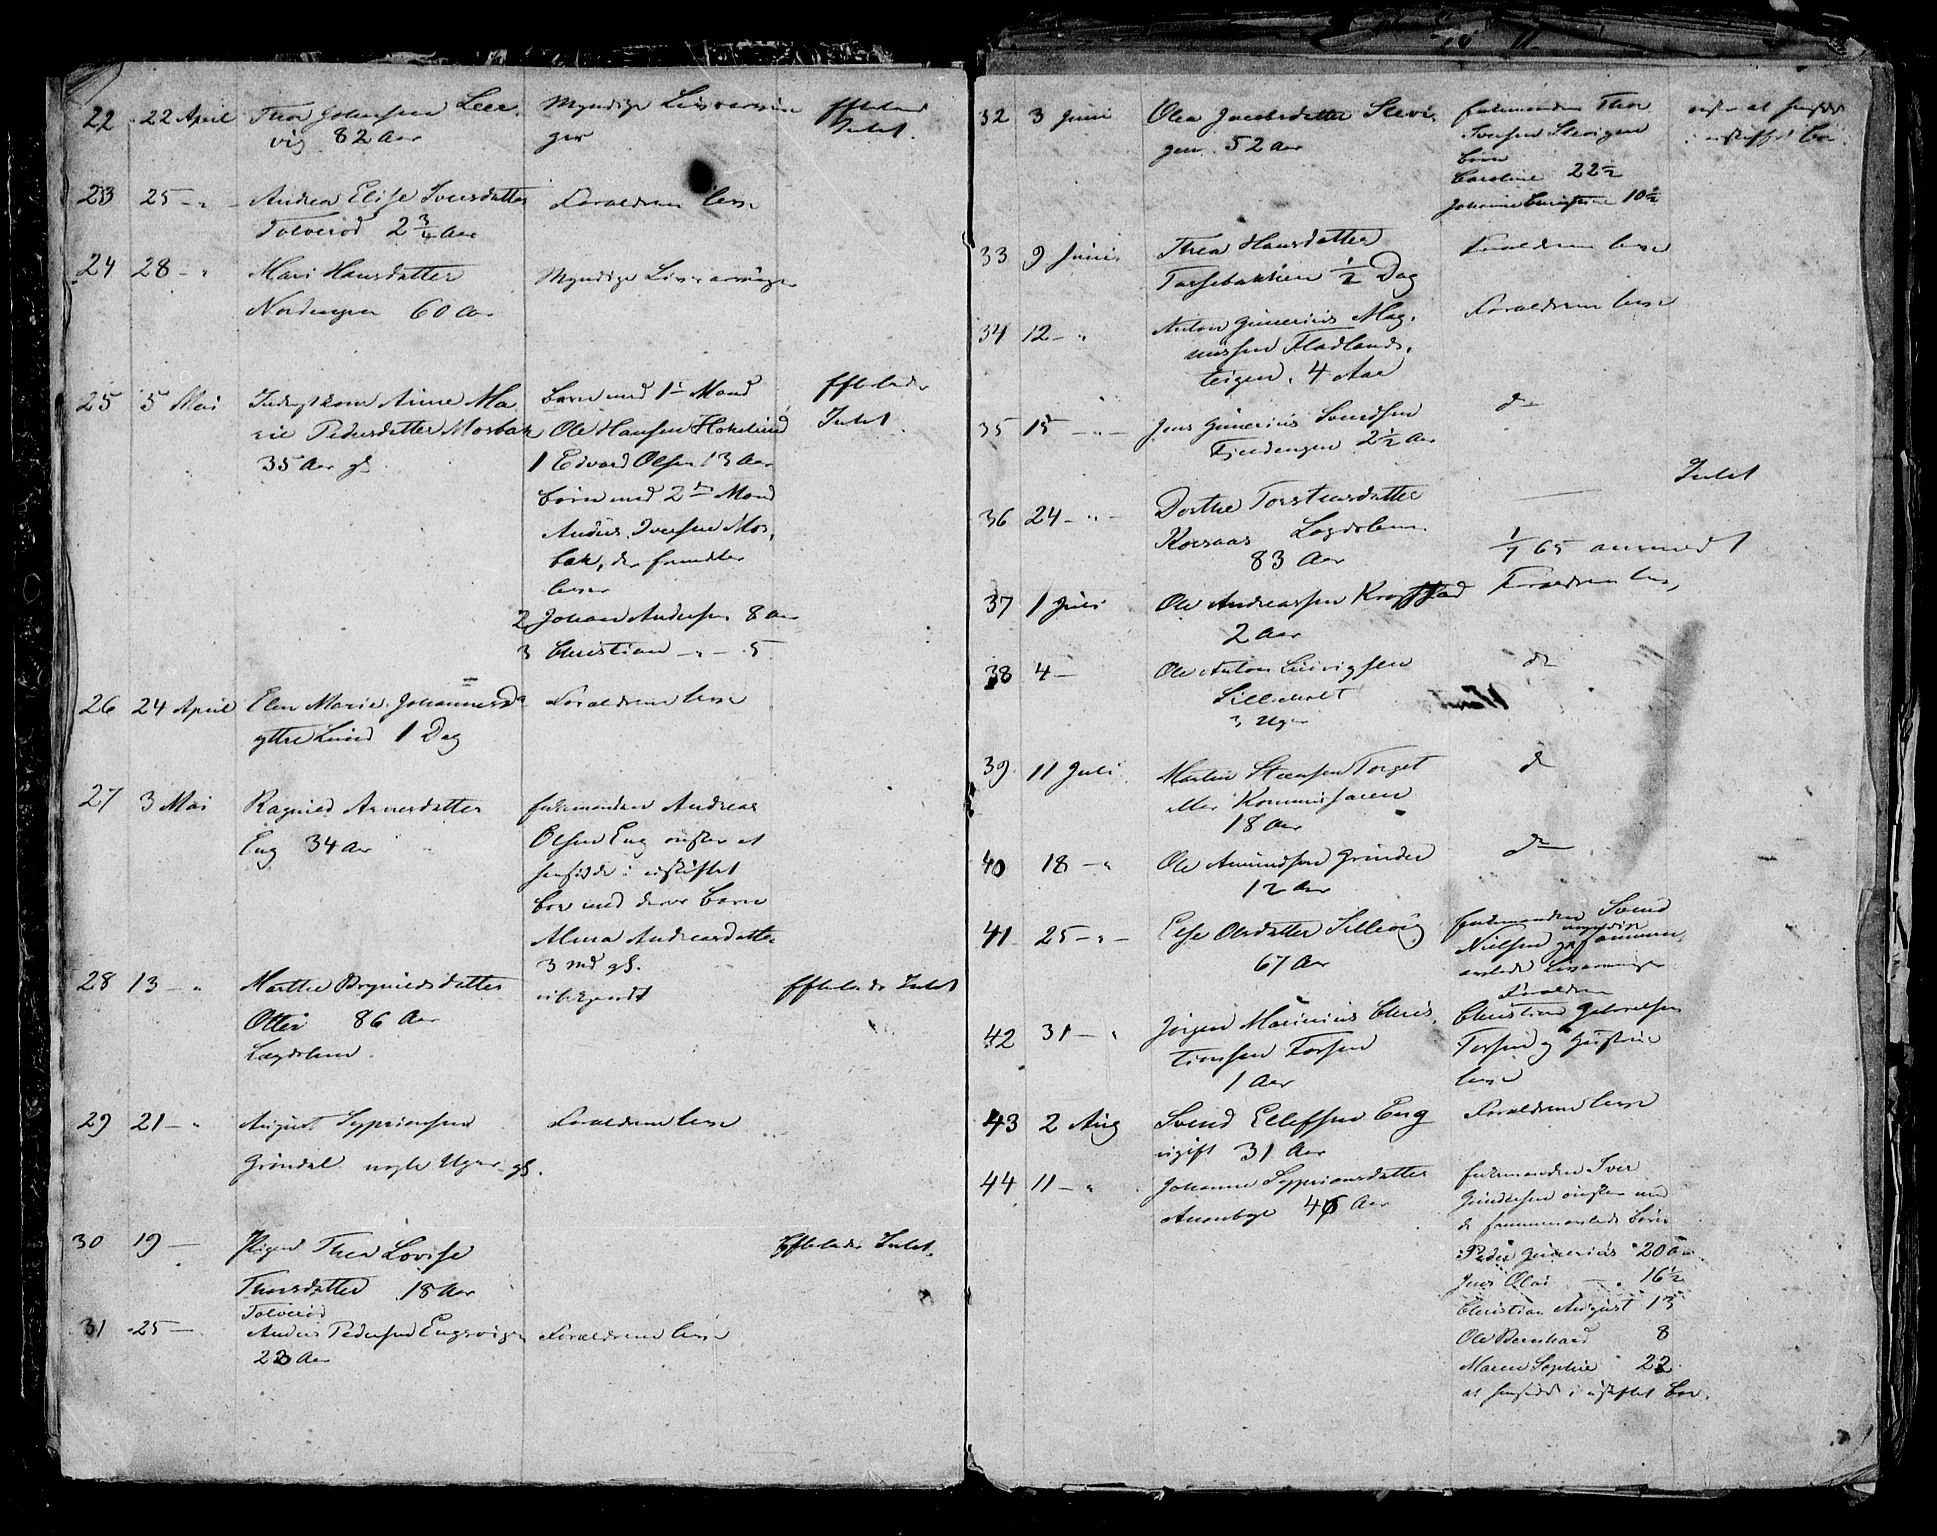 22 22 April Thor Johansen Leer
vig 82 Aar
Myndige Livsarvin
ger
Efterlod
Intet.
23 25 - " - Andrea Elise Iversdatter
Tolverød 2 3/4 Aar
Forældrene leve
24 28 - " Mari Hansdatter
Nordengen 60 Aar
Myndige Livsarvinger
25 5 Mai Inderstkone Anne Ma
rie Pedersdatter Mosbak
35 Aar gl
Børn med 1te Mand
Ole Hansen Hokelund
1 Edvard Olsen 13 Aar
Børn med 2den Mand
Anders Iversen Mos
bak, der fremdeles
lever
2 Johan Andersen 8 Aar
3 Christian - " - 5
Efterlader
Intet
26 24 April Elen Marie Johannesda
yttre Lund 1 Dag
Forældrene leve
27 3 Mai Ragnild Arnesdatter
Eng 34 Aar
Enkemanden Andreas
Olsen Eng ønsker at
hensidde i uskiftet
Boe med deres Barn
Alma Andreasdatter
3 Md gl.
28 13 - " Marthe Brynildsdatter
Otter 86 Aar
Lægdslem.
ubekjendt
Efterlader Intet
29 21 - " August Syprionsen
Grøndal nogle Uger gl.
Forældrene leve
30 19 - Pigen Thea Lovise
Thorsdatter 18 Aar
Tolverød
Efterlader Intet.
31 25 - Anders Pedersen Engsvigen
23 Aar
Forældrene leve
32 3 Juni Olea Jacobsdatter Slevi
gen. 52 Aar
Enkemanden Thor
Iversen Slevigen
Børn
Caroline 22 1/2
Johanne Christine 10 1/2
ønsker at hensidde
i uskiftet Boe.
33 9 Juni Thea Hansdatter
Torsebakken 1/2 Dag
Forældrene leve
34 12 - " Anton Gunerius Mag
nussen Fladlands
teigen. 4 Aar
Forældrene leve
35 15 - " - Jens Gunerius Svendsen
Fjeldengen 2 1/2 Aar
do
36 24 - " - Dorthe Torstensdatter
Korsaas Lægdslem.
83 Aar
Intet
1/7 65 anmeldt
37 1 Juli Ole Andreassen Krogstad
2 Aar
Forældrene leve,
38 4 - Ole Anton Ludvigsen
Lilleholt
3 Uger
do
39 11 Juli Martin Steensen Torget
eller Kommissæren
18 Aar
do
40 18 - " Ole Amundsen Grinder
12 Aar
do
41 25 - " - Else Olsdatter Lillevig
67 Aar
Enkemanden Svend
Nielsen og myndige sammen
avlede Livsarvinger
42 31 - " Jørgen Marinius Chris
tiansen Torsen
1 Aar
Forældrene
Christian Gabrielsen
Torsen og Hustrue
leve
43 2 Aug Svend Ellefsen Eng
ugift 31 Aar
Forældrene leve
44 11 - " Johanne Syprionsdatter
46 Aar
Enkemanden Iver
Gundersen ønsker med
de sammenavlede Børn
Peder Gunerius 20 Aar
Jens Olai - " - 16 1/2
Christian August 13
Ole Bernhard 8
Maren Sophie 22
at hensidde i uskiftet Boe.